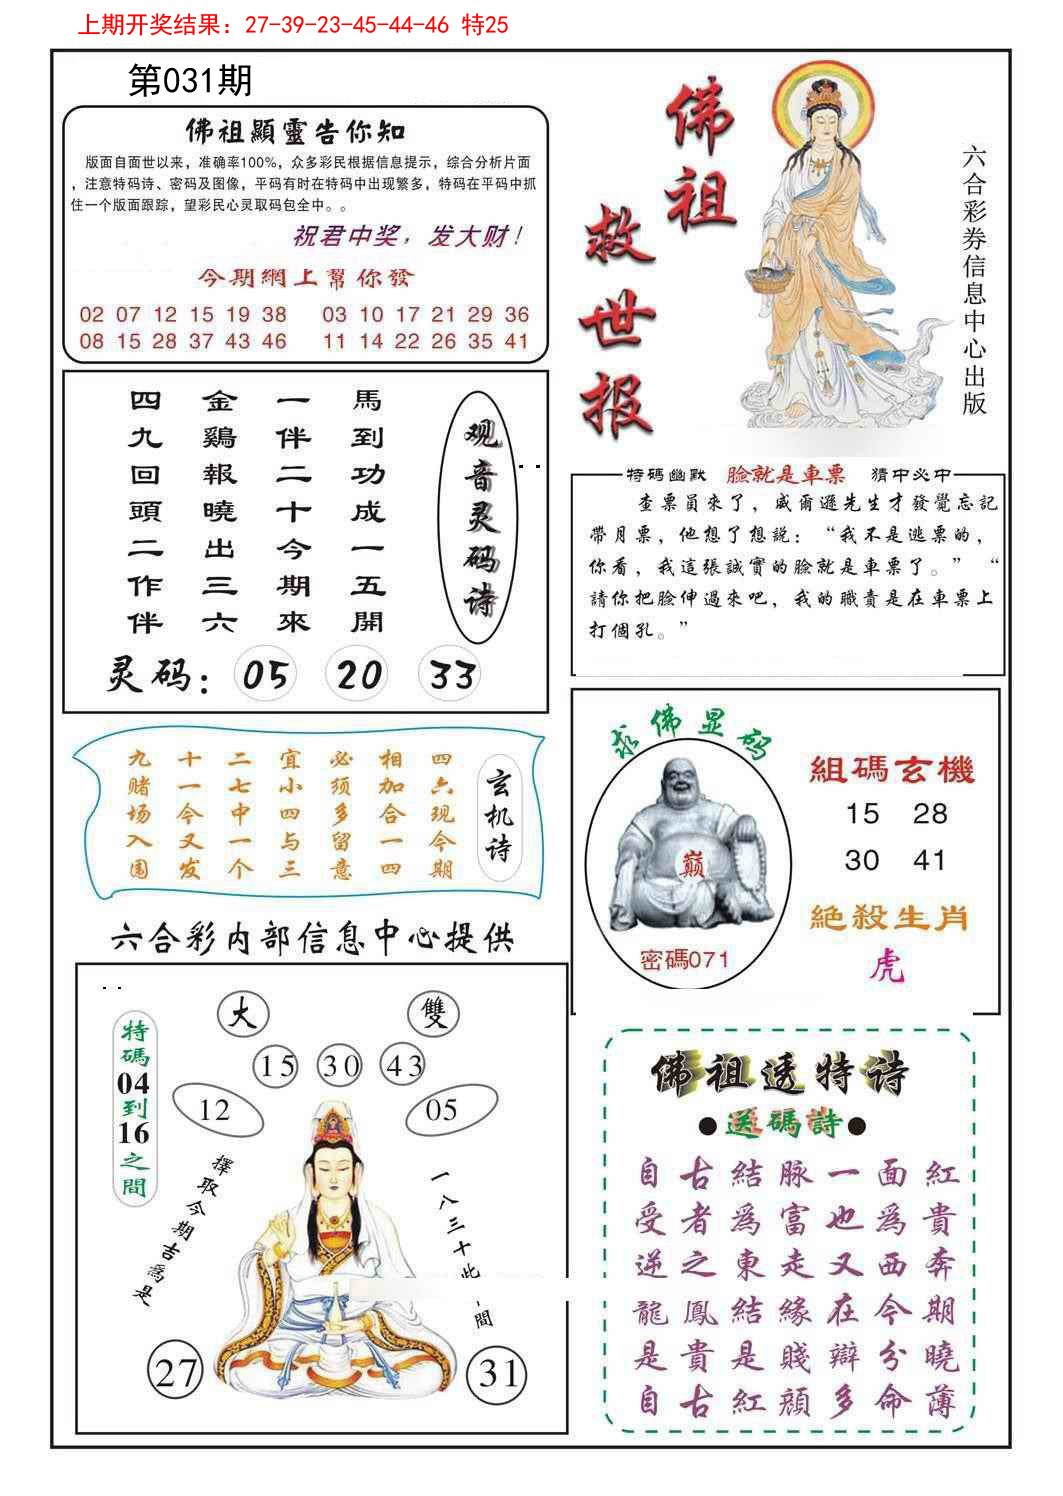 上期开奖结果：27-39-23-45-44-46 特25
第031期
佛祖顯靈告你知
版面自面世以来，准确率100%，众多彩民根据信息提示，综合分析片面
，注意特码诗、密码及图像，平码有时在特码中出现繁多，特码在平码中抓
住一个版面跟踪，望彩民心灵取码包全中。。
祝君中奖，发大财！
今期網上幫你發
02 07 12 15 19 38 03 10 17 21 29 36
08 15 28 37 43 46 11 14 22 26 35 41
佛祖
救世报
六合彩券信息中心出版
观音灵码诗
馬到功成一五開
一伴二十今期來
金鷄報曉出三六
四九回頭二作伴
灵码：05 20 33
特碼幽默 臉就是車票 猜中必中
查票員來了，威爾遜先生才發覺忘記
帶月票，他想了想説：“我不是逃票的，
你看，我這張誠實的臉就是車票了。”“
請你把臉伸過來吧，我的職責是在車票上
打個孔。”
玄机诗
四六现今期
相加合一四
必须多留意
宜小四与三
二七中一个
十一今又发
九赌场入围
求佛显码
巅
密碼071
組碼玄機
15 28
30 41
絕殺生肖
虎
六合彩内部信息中心提供
特碼04到16之間
大 雙
15 30 43
12 05
擇取今期吉爲是
一八三十此間
27 31
佛祖透特诗
●送碼詩●
自古結脉一面紅
受者爲富也爲貴
逆之東走又西奔
龍鳳結緣在今期
是貴是賤辯分曉
自古紅顔多命薄